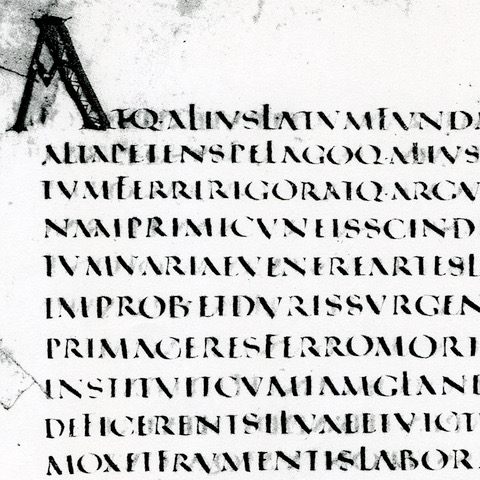 ATQ·ALIVSLATVMFVNDA
ALTAPETENSPELAGOQ·ALIVS
TVMFERRIRIGORATQ·ARGV
NAMPRIMICVNEISSCIND
TVMVARIAEVENEREARTESL
IMPROB·ETDVRISSVRGEN
PRIMACERESFERROMORT
INSTITVITCVMIAMGLAND
DEFICERENTSILVAEETVICT
MOXETFRVMENTISLABOR